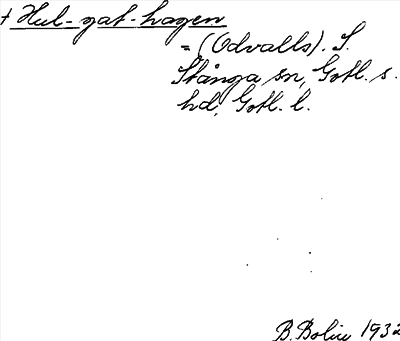 + Hul-gat-hagen
= (Odvalls). S.
Stånga sn, Gotl. s.
hd, Gotl. l.
B. Bolin 1932